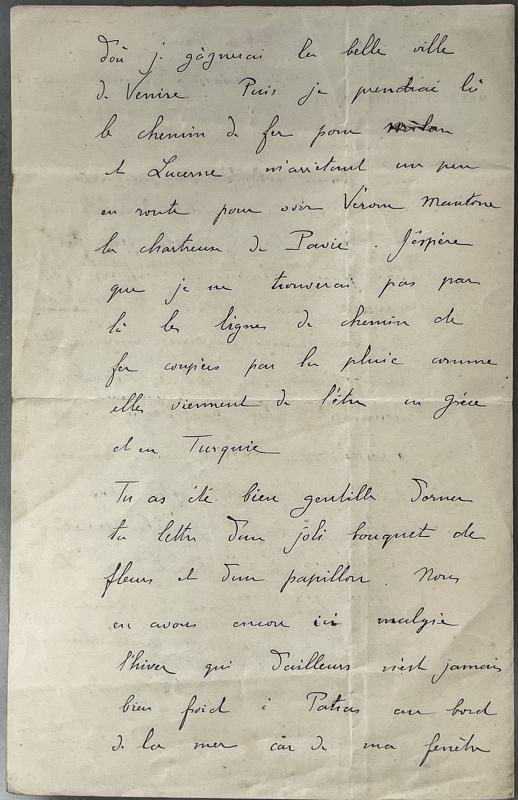 d'où je gagnerai la belle ville
de Venise. Puis je prendrai là
le chemin de fer pour Milan
et Lucerne m'arrêtant un peu
en route pour voir Vérone Mantoue
la chartreuse de Pavie. J'éspère
que je ne trouverai pas par
là les lignes de chemin de
fer coupées par la pluie comme
elles viennent de l'être en grèce
et en Turquie
Tu as été bien gentille d'orner
ta lettre d'un joli bouquet de
fleurs et d'un papillon. Nous
en avons encore ici malgré
l'hiver qui d'ailleurs n'est jamais
bien froid à Patras au bord
de la mer car de ma fenêtre